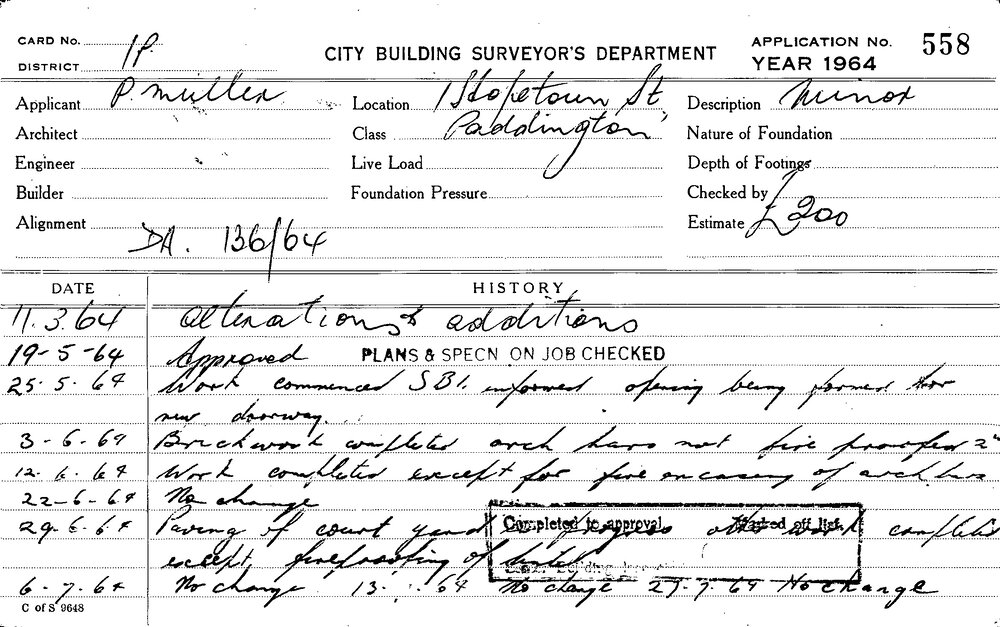 CARD No.
DISTRICT 1P.
CITY BUILDING SURVEYOR'S DEPARTMENT
APPLICATION No. 558
YEAR 1964
Applicant P. Muller Location 1 Stopetown St, Description Minor
Architect Class Paddington Nature of Foundation
Engineer Live Load Depth of Footings
Builder Foundation Pressure Checked by
Alignment Estimate £200
DA. 136/64
DATE HISTORY
11.3.64 alterations & additions
19-5-64 Approved PLANS & SPECN ON JOB CHECKED
25.5.64 Work commenced SBI. informed opening being formed for
new doorway.
3-6-64 Brickwork completed arch bars not fire proofed 2"
12.6.64 Work completed except for fire encasing of arch bars
22-6-64 No change
29.6.64 Paving of court yard in progress other work completed
Completed to approval. Marked off list.
except fireproofing of
6-7-64 No change 13. .64 No change 27.7.64 No change
C of S 9648